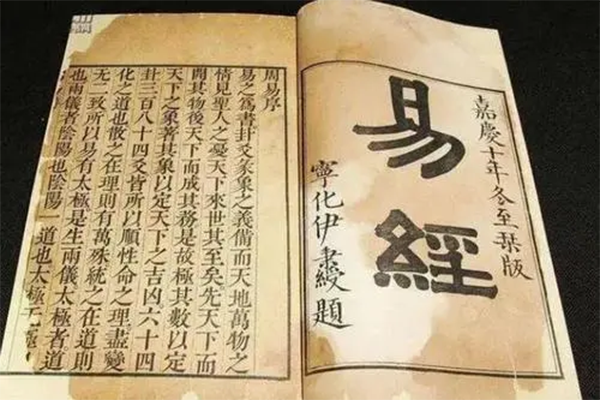 嘉慶十年冬至栞版
易經
寧化伊秉綬題
周易序
易之爲書卦爻彖象之義備而天地萬物之
情見聖人之憂天下來世其至矣先天下而
開其物後天下而成其務是故極其數以定
天下之象著其象以定天下之吉凶六十四
卦三百八十四爻皆所以順性命之理盡變
化之道也散之在理則有萬殊統之在道則
无二致所以易有太極是生兩儀太極者道
也兩儀者陰陽也陰陽一道也太極